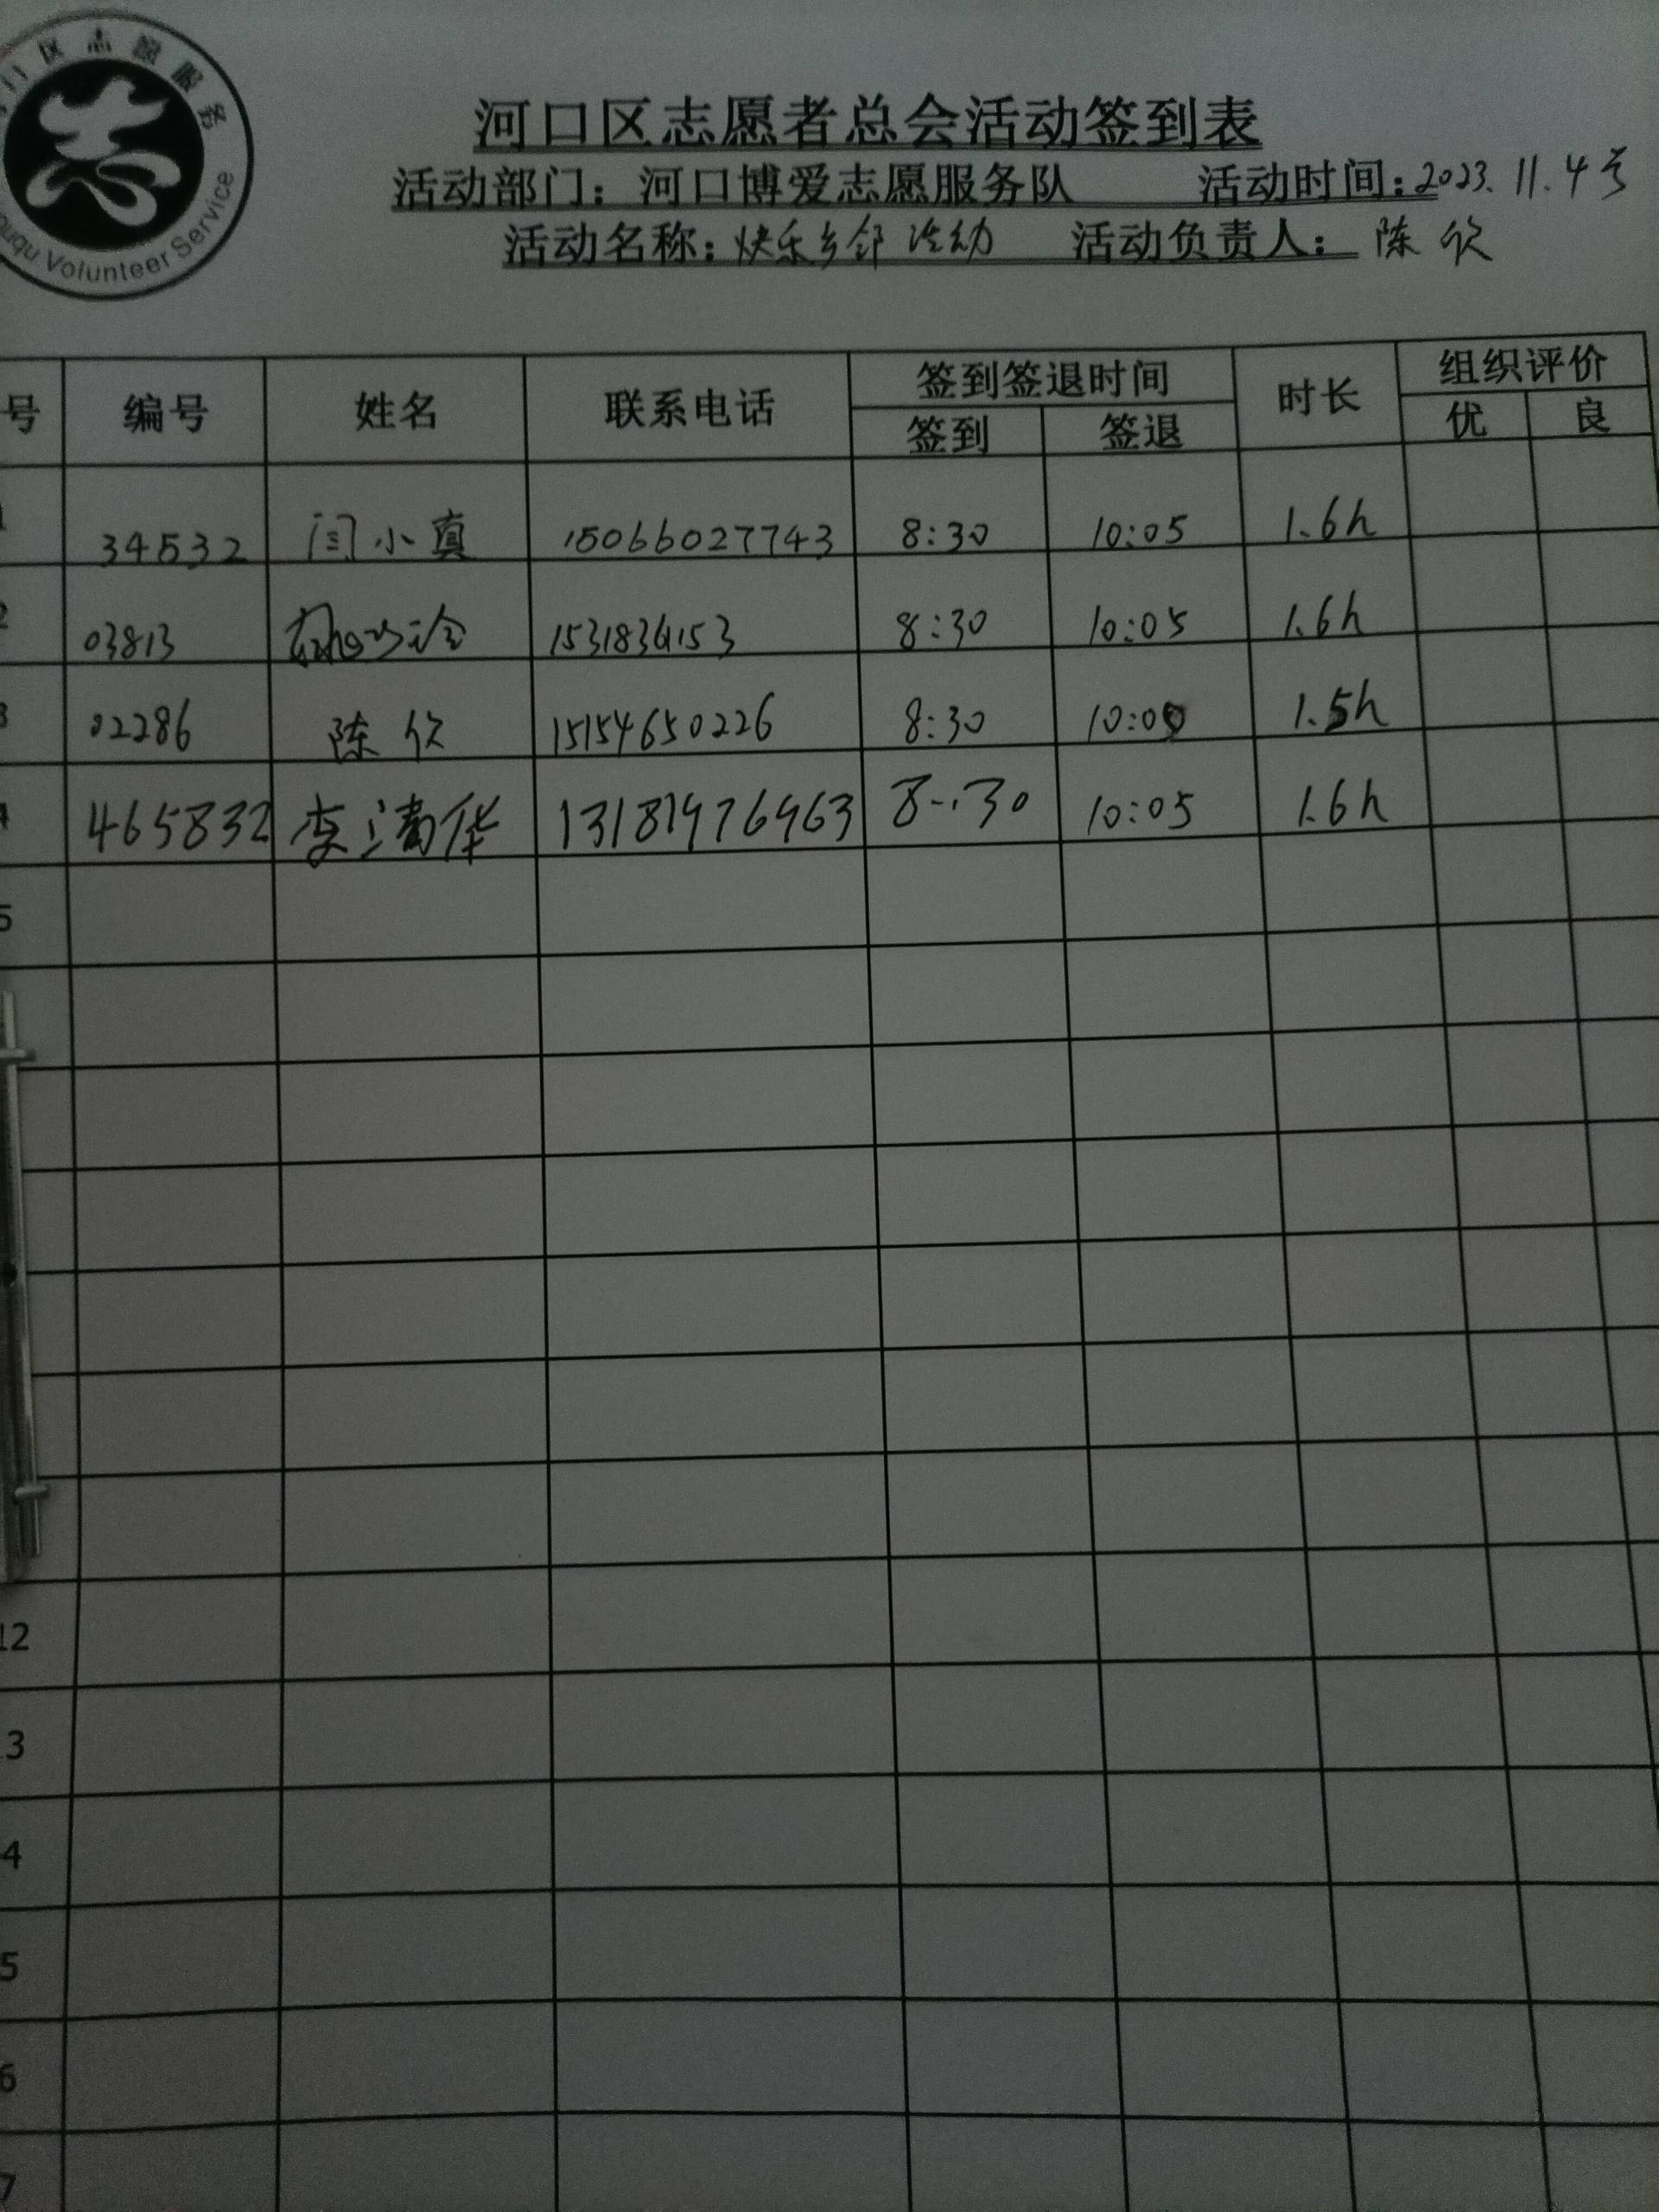 口区志愿服务
ouqu Volunteer Service
河口区志愿者总会活动签到表
活动部门：河口博爱志愿服务队 活动时间：2023.11.4号
活动名称：快乐乡邻活动 活动负责人：陈欣
号 编号 姓名 联系电话 签到签退时间 时长 组织评价
签到 签退 优 良
1 34532 闫小真 15066027743 8:30 10:05 1.6h
2 03813 8:30 10:05 1.6h
3 02286 陈欣 15154650226 8:30 1.5h
4 465832 李清华 13181976963 8:30 10:05 1.6h
5
12
3
4
5
6
7